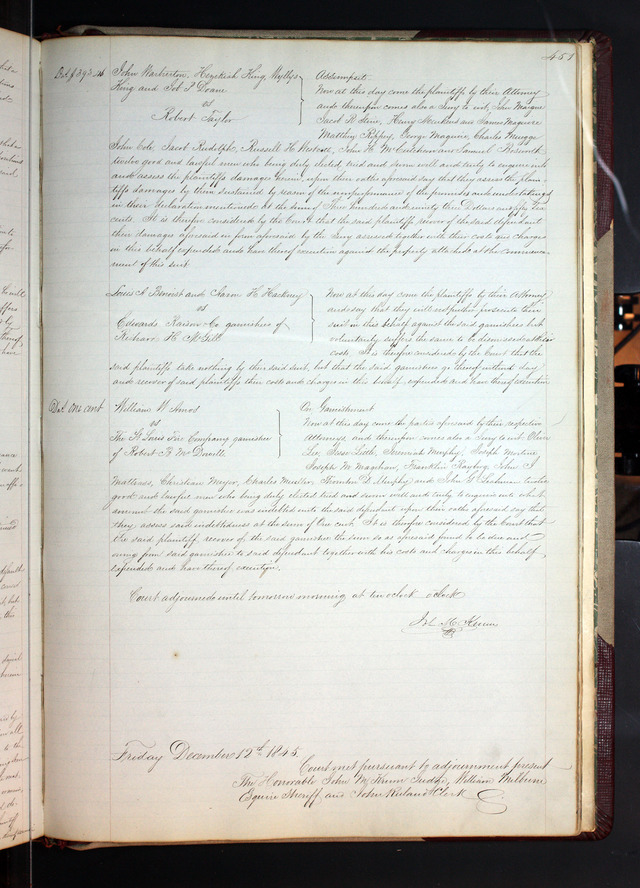 451
Dct $393.46 John Warburton, Hezekiah King, Wyllys
King and Job P Doane
vs
Robert Taylor
Assumpsit.
Now at this day come the plaintiffs by their Attorney
and thereupon comes also a Jury to wit, John Magne
Jacob R Stine, Henry and James Magwire
Matthew Rippey, George Maguire, Charles
John Cole, Jacob Rudolph, Russell H Westcott, John H McCutchan and Samuel
twelve good and lawful men who being duly elected tried and sworn well and truly to enquire into
and assess the plaintiffs damages herein, upon their oaths aforesaid say that they assess the plain-
tiffs damages by them sustained by reason of the non performance of the promises and undertakings
in their declaration mentioned at the sum of Three hundred and ninety three Dollars and fifty six
cents. It is therefore considered by the Court that the said plaintiffs recover of the said defendant
their damages aforesaid in form aforesaid by the Jury assessed together with their costs and charges
in this behalf expended and have thereof execution against the property attached at the commence-
ment of this suit.
Louis A Benoist and Aaron H Hackney
vs
Edward Raison Co garnishees of
Richard H McGill
Now at this day come the plaintiffs by their Attorney
and say that they will not further prosecute their
suit in this behalf against the said garnishees but
voluntarily suffer the same to be dismissed at their
costs. It is therefore considered by the Court that the
said plaintiffs take nothing by their said suit, but that the said garnishees go thereof without day
and recover of said plaintiffs their costs and charges in this behalf expended and have thereof execution
Dct One cent William W Amos
vs
The St Louis Fire Company garnishee
of Robert R McDowille
On Garnishment
Now at this day come the parties aforesaid by their respective
Attorneys, and thereupon comes also a Jury to wit Oliver
Lee, Jesse Little, Jeremiah Murphy, Joseph
Joseph M Maguhan, Franklin John J
Mathews, Christian Meyer, Charles Mueller, Thornton D Murphy and John G twelve
good and lawful men who being duly elected tried and sworn well and truly to enquire into what
amount the said garnishee was indebted unto the said defendant upon their oaths aforesaid say that
they assess said indebtedness at the sum of One cent. It is therefore considered by the Court that
the said plaintiff recover of the said garnishee the sum so as aforesaid found to be due and
owing from said garnishee to said defendant together with his costs and charges in this behalf
expended and have thereof execution.
Court adjourned until tomorrow morning at ten oclock oclock
Jno M Krum
Friday December 12th 1845.
Court met pursuant to adjournment present
The Honorable John M Krum Judge, William Milburn
Esquire Sheriff and John Ruland Clerk